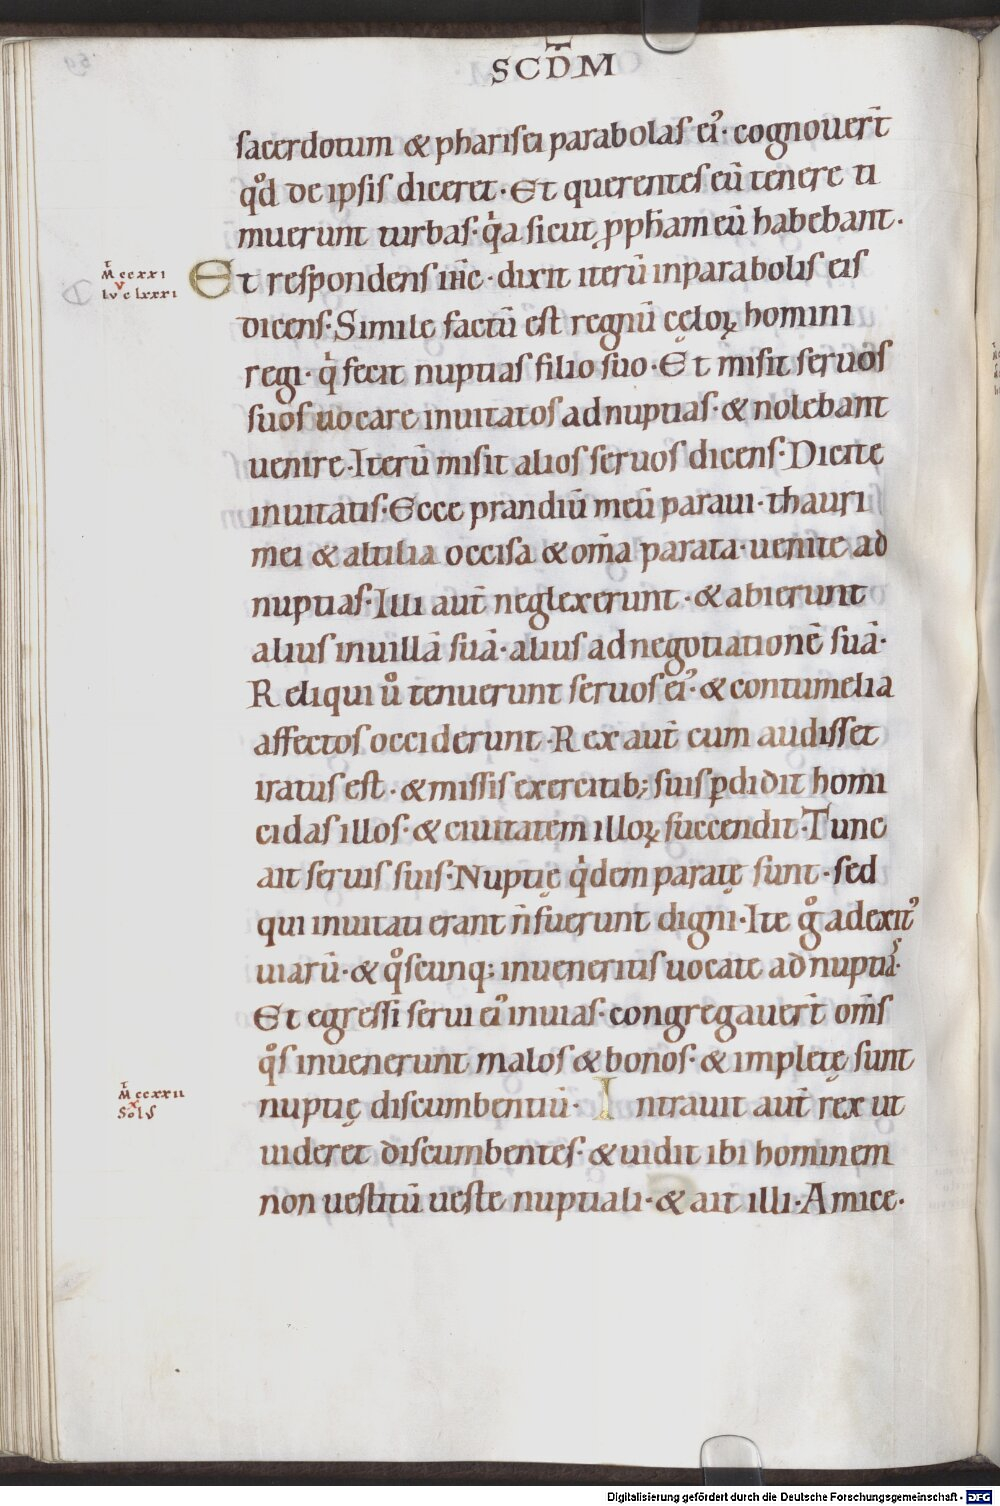 SCD̄M
sacerdotum & pharisei parabolas ei᾿· cognouer̄t
qͦd de ipsis diceret· Et querentes eū tenere ti
muerunt turbas· qͥa sicut ꝓph̄am eū habebant·
Mͭ ccxxi
lv̆c lxxxi
Et respondens ih̄c· dixit iterū inparabolis eis
dicens· Simile factū est regnū cęloꝝ homini
regi· qͥ fecit nuptias filio suo· Et misit seruos
suos uocare inuitatos ad nuptias· & nolebant
uenire· Iterū misit alios seruos dicens· Dicite
inuitatis· Ecce prandiū meū paraui· thauri
mei & altilia occisa & om̄a parata· uenite ad
nuptias· Illi aut̄ neglexerunt· & abierunt
alius inuillā suā· alius ad negotiationē suā·
Reliqui uͦ tenuerunt seruos ei᾿· & contumelia
affectos occiderunt· Rex aut̄ cum audisset
iratus est· & missis exercitib; suis ꝑdidit homi
cidas illos· & ciuitatem illoꝝ succendit· Tunc
ait seruis suis· Nuptię qͥdem paratę sunt· sed
qui inuitati erant n̄ fuerunt digni· Ite gͦ ad exit᾿
uiarū· & qͦscunq; inueneritis uocate ad nuptiaˢ·
Et egressi serui ei᾿ inuias· congregauer̄t om̄s
qͦs inuenerunt malos & bonos· & impletę sunt
Mͭ ccxxii
Solŭs
nuptię discumbentiū· Intrauit aut̄ rex ut
uideret discumbentes· & uidit ibi hominem
non uestitū ueste nuptiali· & ait illi· Amice·
Digitalisierung gefördert durch die Deutsche Forschungsgemeinschaft - DFG